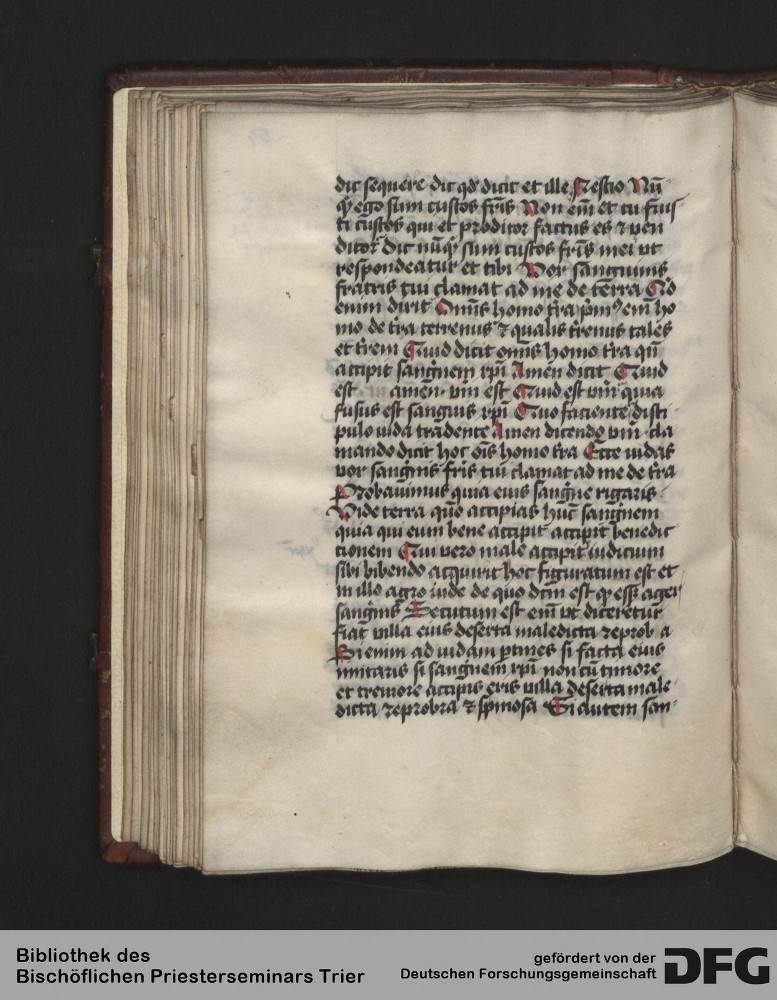 dic sequere dic qd dicit et ille Nestio Nū
qͥ ego sum custos fr̄is Non em̄ et tu fuis
ti custos qui et proditor factus es ⁊ ven
ditor Dic nūqͥ sum custos fr̄is mei vt
respondeatur et tibi Vox sanguinis
fratris tui clamat ad me de terra Qd
enim dixit Omīs homo tr̄a pͥmꝰ em̄ ho
mo de tr̄a terrenus ⁊ qualis tr̄enus tales
et tr̄eni Quid dicit omīs homo tr̄a qn̄
accipit sangͥnem xp̄i Amen dicit Quid
est amen vm̄ est Quid est vm̄ quia
fusus est sanguis xp̄i Quo faciente disci
pulo iuda tradente Amen dicendo vm̄ cla
mando dicit hoc oīs homo tr̄a Ecce iudas
vox sangͥnis fr̄is tui clamat ad me de tr̄a
Probauimus quia eius sangͥne rigaris
Vide terra quo accipias hūc sangͥnem
quia qui eum bene accipit accipit benedic
tionem Qui vero male accipit iudicium
sibi bibendo acquirit hoc figuratum est et
in illo agro iude de quo dcm̄ est qͥ esse ager
sangͥnis Secutum est em̄ vt diceretur
fiat villa eius deserta maledicta reproba
Si enim ad iudam ꝑtines si facta eius
imitaris si sanguinem xp̄i non cū timore
et tremore accipis eris villa deserta male
dicta reprobra ⁊ spinosa Si autem san
Bibliothek des
Bischöflichen Priesterseminars Trier
gefördert von der
Deutschen Forschungsgemeinschaft
DFG